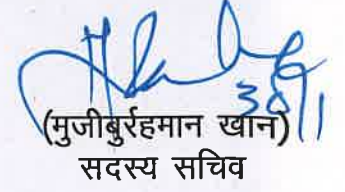 30/1
(मुजीबुर्रहमान खान)
सदस्य सचिव